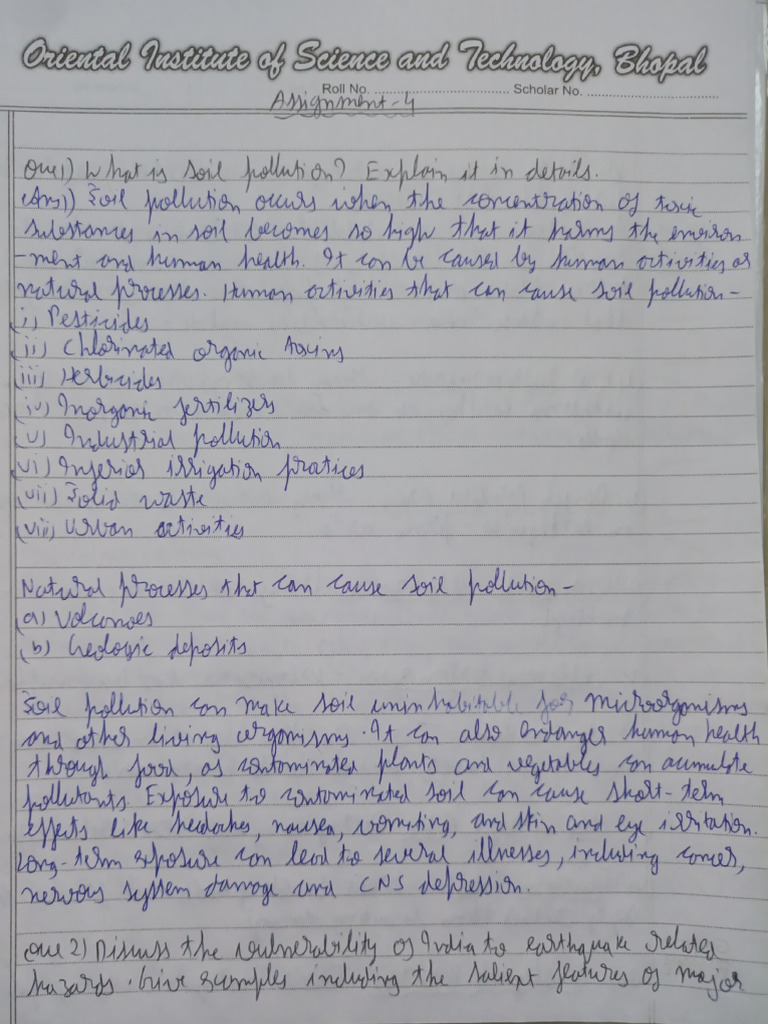 Oriental Institute of Science and Technology, Bhopal
Roll No. ........................................ Scholar No. ........................................
Assignment-4
Que1) What is soil pollution? Explain it in details.
(Ans1) Soil pollution occurs when the concentration of toxic
substances in soil becomes so high that it harms the environ
-ment and human health. It can be caused by human activities or
natural processes. Human activities that can cause soil pollution-
(i) Pesticides
(ii) Chlorinated organic toxins
(iii) Herbicides
(iv) Inorganic fertilizers
(v) Industrial pollution
(vi) Inferior irrigation pratices
(vii) Solid waste
(viii) Urban activities
Natural processes that can cause soil pollution-
(a) Volcanoes
(b) Geologic deposits
Soil pollution can make soil uninhabitable for microorganisms
and other living organisms. It can also endanger human health
through food, as contaminated plants and vegetables can acumulate
pollutants. Exposure to contaminated soil can cause short-term
effects like headaches, nausea, vomiting, and skin and eye irritation.
Long-term exposure can lead to several illnesses, including cancer,
nervous system damage and CNS depression.
Que 2) Discuss the vulnerability of India to earthquake related
hazards. Give examples including the salient features of major